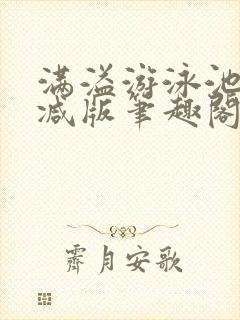 满溢游泳池
减版笔趣阁
霁月安歌